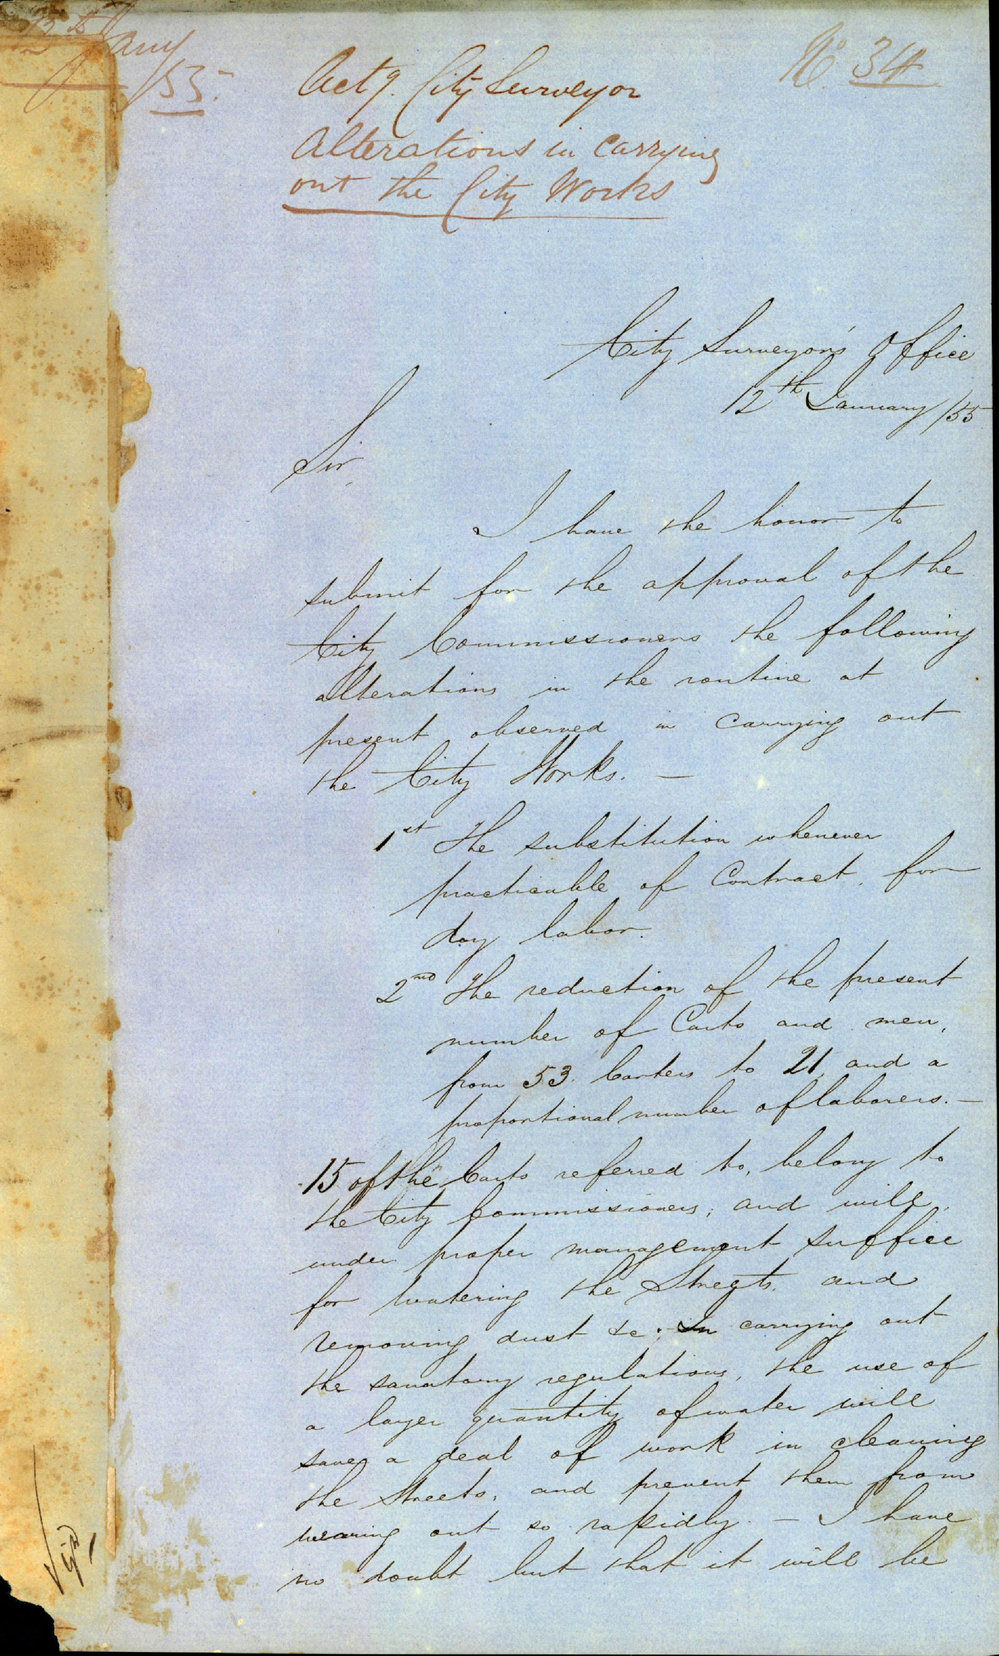 12th Jany
/55.
No 34
Actg. City Surveyor
Alterations in carrying
out the City Works
City Surveyor's Office
12th January /55
Sir,
I have the honor to
submit for the approval of the
City Commissioners the following
alterations in the routine at
present observed in carrying out
the City Works. —
1st The substitution whenever
practicable of Contract, for
day labor.
2nd The reduction of the present
number of Carts and men,
from 53 Carters to 21, and a
proportional number of laborers. —
15 of the Carts referred to, belong to
the City Commissioners, and will,
under proper management suffice
for watering the Streets, and
removing dust &c; In carrying out
the sanatary regulations, the use of
a larger quantity of water will
save a deal of work in cleaning
the Streets, and prevent them from
wearing out so rapidly. — I have
no doubt but that it will be